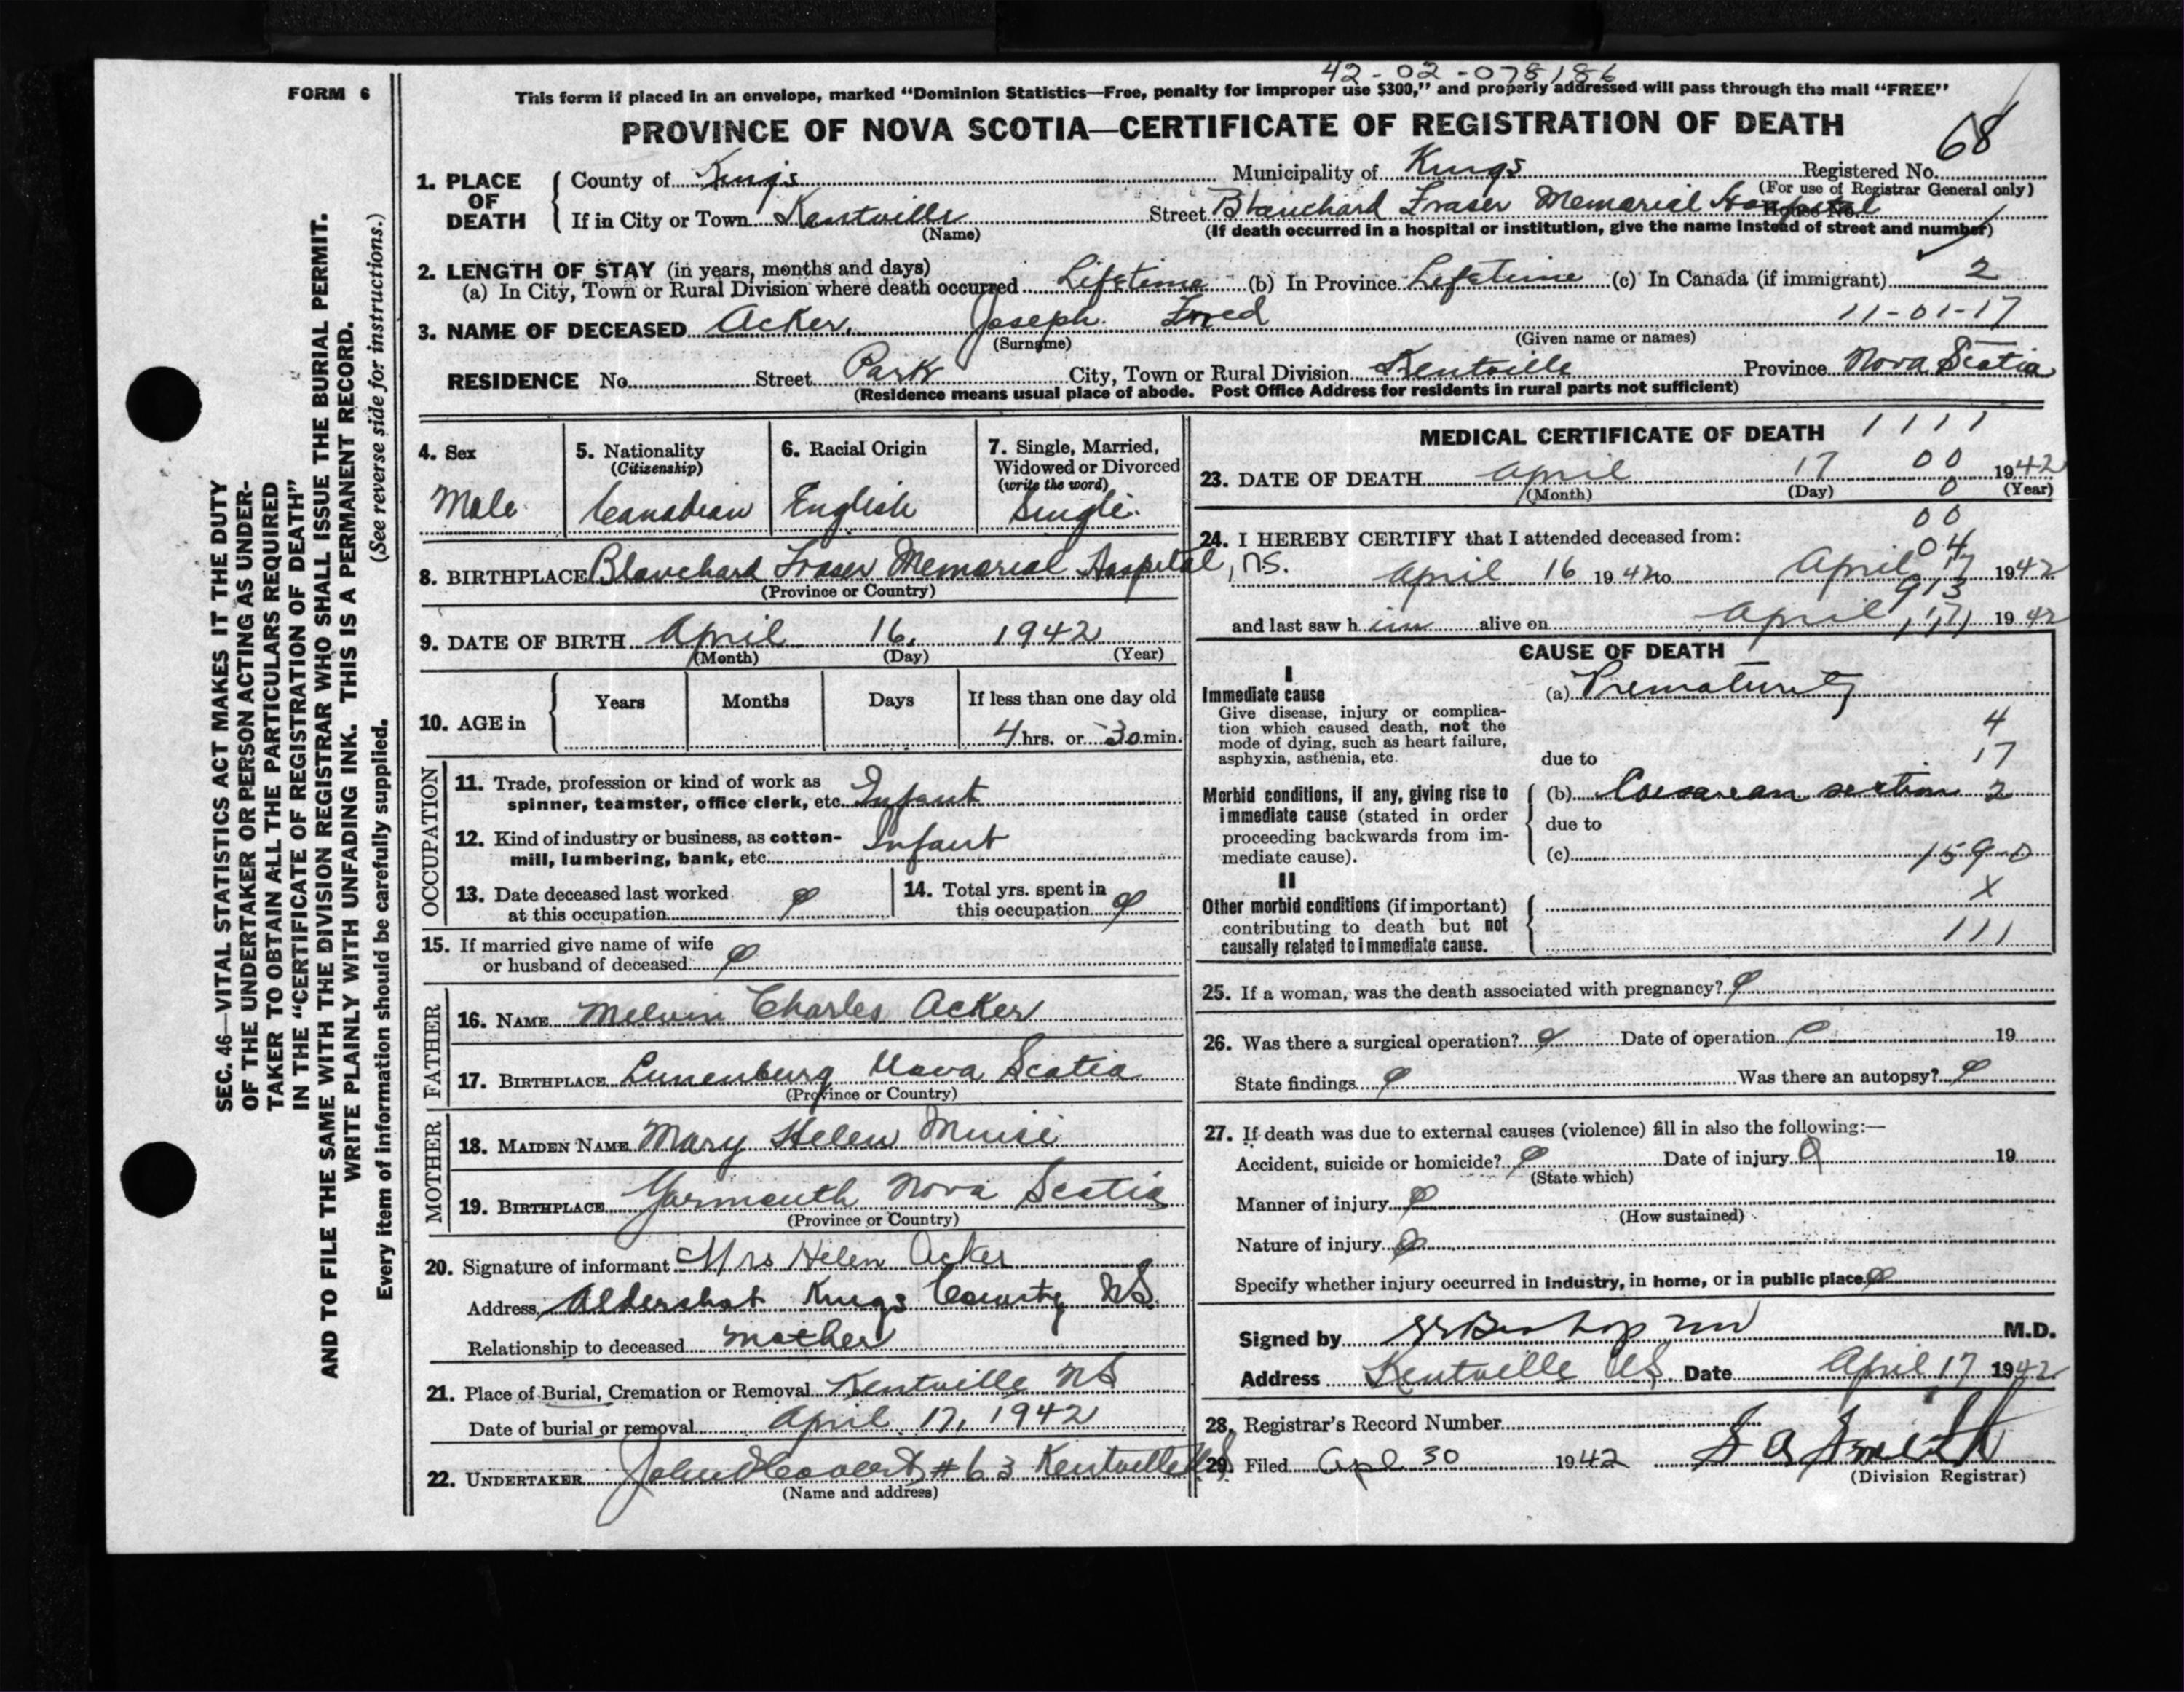 42-02-078186
FORM 6
This form if placed in an envelope, marked "Dominion Statistics—Free, penalty for improper use $300," and properly addressed will pass through the mail "FREE"
PROVINCE OF NOVA SCOTIA—CERTIFICATE OF REGISTRATION OF DEATH
68
1. PLACE OF DEATH
County of Kings Municipality of Kings Registered No.
(For use of Registrar General only)
If in City or Town Kentville Street Blanchard Fraser Memorial Hospital House No.
(Name) (If death occurred in a hospital or institution, give the name instead of street and number)
2. LENGTH OF STAY (in years, months and days)
(a) In City, Town or Rural Division where death occurred Lifetime (b) In Province Lifetime (c) In Canada (if immigrant) 2
3. NAME OF DECEASED Acker, Joseph Fred 11-01-17
(Surname) (Given name or names)
RESIDENCE No. Street Park City, Town or Rural Division Kentville Province Nova Scotia
(Residence means usual place of abode. Post Office Address for residents in rural parts not sufficient)
4. Sex
Male
5. Nationality
(Citizenship)
Canadian
6. Racial Origin
English
7. Single, Married,
Widowed or Divorced
(write the word)
Single
8. BIRTHPLACE Blanchard Fraser Memorial Hospital, NS.
(Province or Country)
9. DATE OF BIRTH April 16, 1942
(Month) (Day) (Year)
10. AGE in
Years Months Days If less than one day old
4 hrs. or 30 min.
OCCUPATION
11. Trade, profession or kind of work as
spinner, teamster, office clerk, etc. Infant
12. Kind of industry or business, as cotton-
mill, lumbering, bank, etc. Infant
13. Date deceased last worked
at this occupation
14. Total yrs. spent in
this occupation
15. If married give name of wife
or husband of deceased
FATHER
16. NAME Melvin Charles Acker
17. BIRTHPLACE Lunenburg Nova Scotia
(Province or Country)
MOTHER
18. MAIDEN NAME Mary Helen Muise
19. BIRTHPLACE Yarmouth Nova Scotia
(Province or Country)
20. Signature of informant Mrs Helen Acker
Address Aldershot Kings County NS
Relationship to deceased mother
21. Place of Burial, Cremation or Removal Kentville NS
Date of burial or removal April 17, 1942
22. UNDERTAKER # 63 Kentville NS
(Name and address)
MEDICAL CERTIFICATE OF DEATH 1111
00
23. DATE OF DEATH April 17 1942
(Month) (Day) (Year)
0
00
24. I HEREBY CERTIFY that I attended deceased from:
04
April 16 1942 to April 17 1942
913
and last saw h im alive on April 17 1942
CAUSE OF DEATH
I
Immediate cause
Give disease, injury or complica-
tion which caused death, not the
mode of dying, such as heart failure,
asphyxia, asthenia, etc.
(a) Prematurity
4
due to 17
Morbid conditions, if any, giving rise to
immediate cause (stated in order
proceeding backwards from im-
mediate cause).
(b) Caesarean section 2
due to
(c) 159-0
II
Other morbid conditions (if important)
contributing to death but not
causally related to immediate cause.
X
111
25. If a woman, was the death associated with pregnancy?
26. Was there a surgical operation? Date of operation 19
State findings Was there an autopsy?
27. If death was due to external causes (violence) fill in also the following:—
Accident, suicide or homicide? Date of injury 19
(State which)
Manner of injury
(How sustained)
Nature of injury
Specify whether injury occurred in industry, in home, or in public place
Signed by Bishop M.D.
Address Kentville NS. Date April 17 1942
28. Registrar's Record Number
29. Filed Apl 30 1942 Smith
(Division Registrar)
SEC. 46—VITAL STATISTICS ACT MAKES IT THE DUTY
OF THE UNDERTAKER OR PERSON ACTING AS UNDER-
TAKER TO OBTAIN ALL THE PARTICULARS REQUIRED
IN THE "CERTIFICATE OF REGISTRATION OF DEATH"
AND TO FILE THE SAME WITH THE DIVISION REGISTRAR WHO SHALL ISSUE THE BURIAL PERMIT.
WRITE PLAINLY WITH UNFADING INK. THIS IS A PERMANENT RECORD.
Every item of information should be carefully supplied. (See reverse side for instructions.)